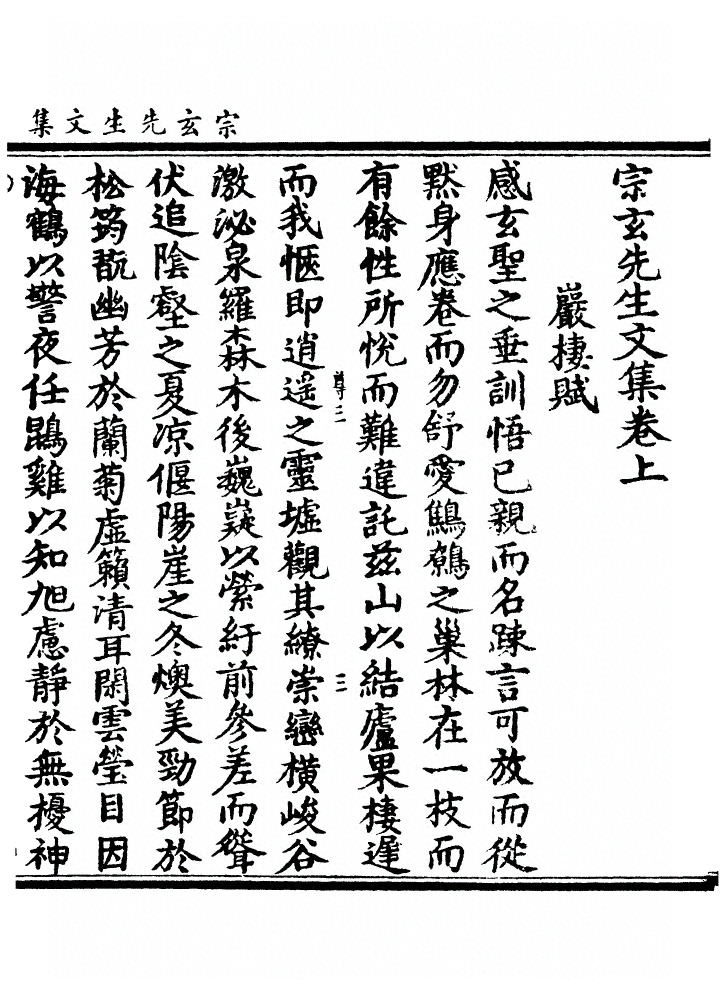 宗玄先生文集
宗玄先生文集卷上
巖棲賦
感玄聖之垂訓悟已親而名踈言可放而從
黙身應卷而勿舒愛鷦鷯之巢林在一枝而
有餘性所悅而難違託茲山以結廬果棲遲
而我愜即逍遥之靈墟觀其繚崇巒橫峻谷
尊三
三
激泌泉羅森木後巍嶷以縈紆前參差而聳
伏追陰壑之夏凉偃陽崖之冬燠美勁節於
松筠翫幽芳於蘭菊虛籟清耳閑雲瑩目因
海鶴以警夜任鵾雞以知旭慮靜於無擾神